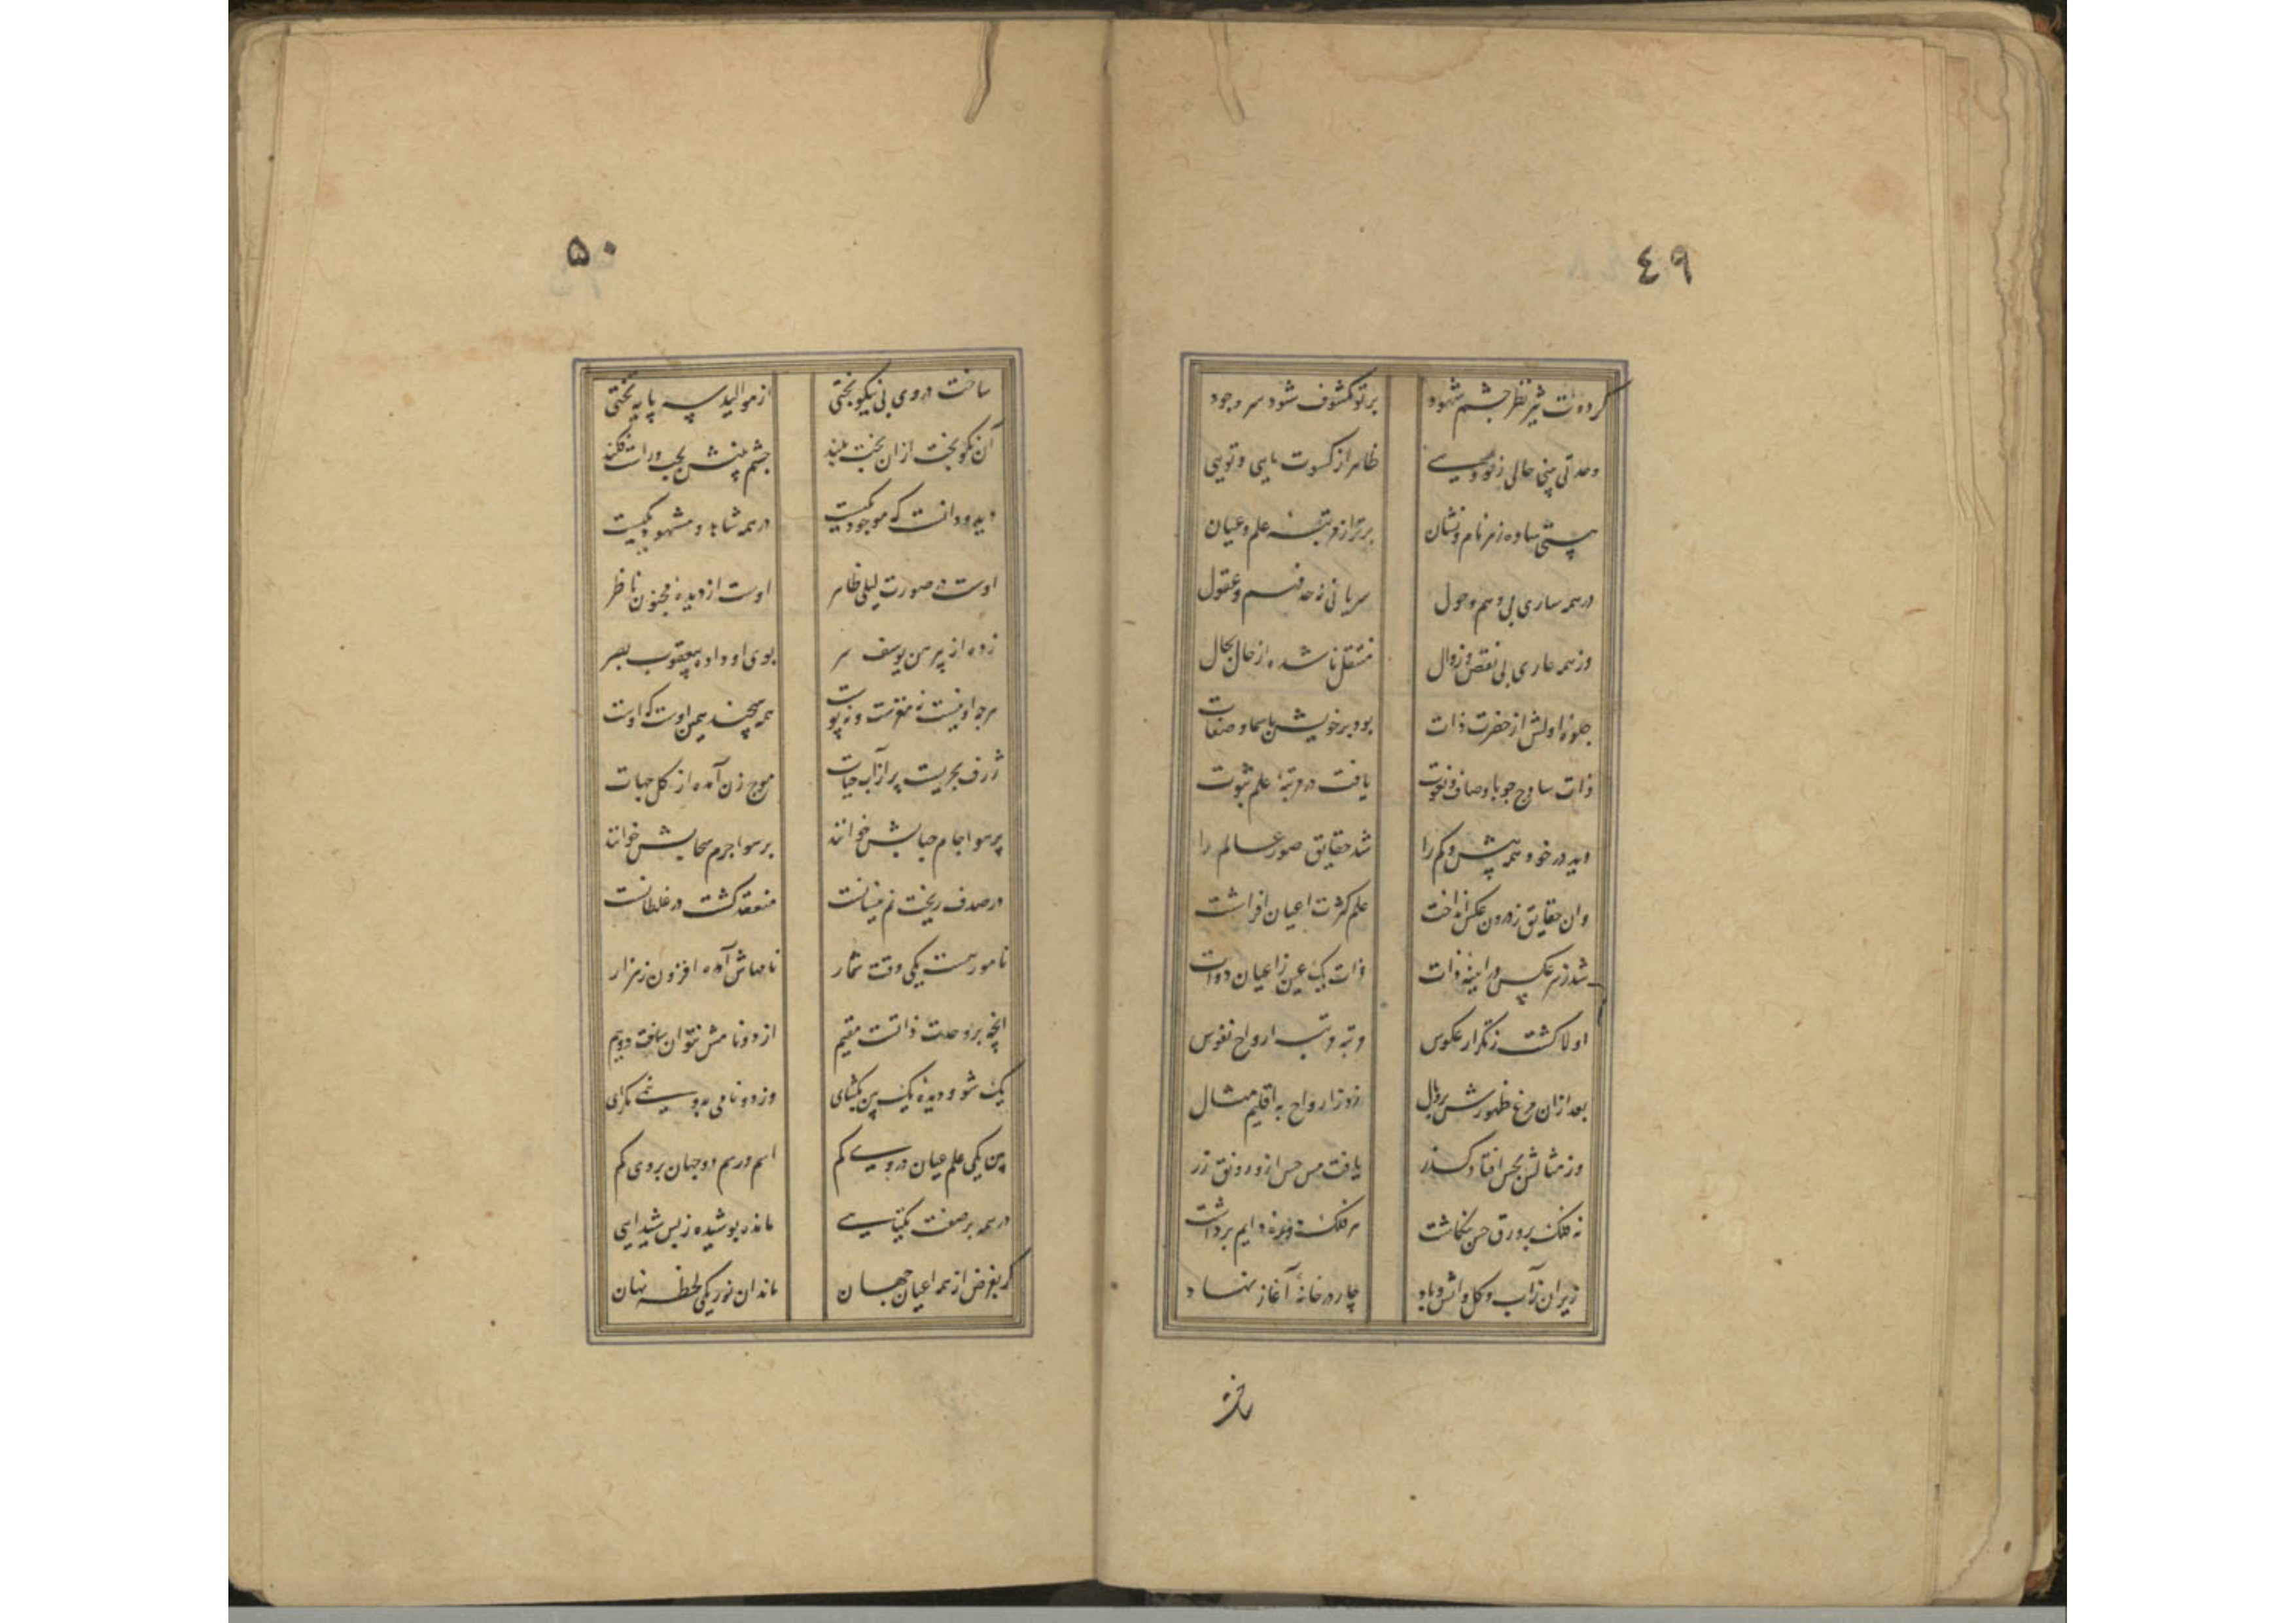 ٤٩
گردهات تیز نظر چشم شهود
بر تو مکشوف شود سر وجود
وحدتی بینی خالی ز
ظاهر از کسوت مایی و تویی
هستی ساده ز هر نام و نشان
برتر از مرتبه علم و عیان
در همه ساری بی وهم و حلول
سریانی نه حد فهم و عقول
وز همه عاری بی نقص و زوال
منتقل ناشده از حال بحال
جلوهٔ اولش از حضرت ذات
بود بر خویش باسما و صفات
ذات ساذج چو باوصاف و نعوت
یافت در مرتبهٔ علم ثبوت
دید در خود همه بیش و کم را
شد حقایق صور عالم را
وان حقایق ز درون عکس انداخت
علم کثرت اعیان افراشت
شد ز هر عکس در آینهٔ ذات
ذات یک عین ز اعیان ذوات
اولا گشت ز تکرار عکوس
رتبه رتبه ارواح نفوس
بعد ازان مرغ ظهورش پر و بال
زد ز ارواح به اقلیم مثال
وز مثالش بحس افتاد گذر
یافت مس حس از و رونق زر
نه فلک بر ورق حس بنگاشت
هر فلک دایم برداشت
زیر آن ز آب و گل و آتش و باد
چار در خانهٔ آغاز نهاد
ساخت
٥٠
ساخت در وی پی نیکو بختی
از موالید سه پایه تختی
آن نکو بخت ازان تخت بلند
چشم بینش بچپ و راست فکند
دید و دانست که موجود یکیست
در همه شاهد و مشهود یکیست
اوست در صورت لیلی ظاهر
اوست از دیدهٔ مجنون ناظر
زده از پیرهن یوسف سر
بوی او داده بیعقوب بصر
هر چه او نیست نه مغزست و نه پوست
همه هیچند همین اوست که اوست
ژرف بحریست پر از آب حیات
موج زن آمده از کل جهات
پر هوا جام حبابش خوانند
بر هوا جرم سحابش خوانند
در صدف ریخت نم نیسانست
منعقد گشت در غلطانست
نامور هست یکی وقت شمار
نامهاش آمده افزون ز هزار
آنچه بر وحدت ذاتست مقیم
از دو نامش نتوان ساخت دو نیم
یک شو و دیدهٔ یک بین بگشای
وز دو نامی به دویی مگرای
بین یکی علم عیان در وی گم
اسم و رسم دو جهان بر وی گم
در همه بر صفت یکتایی
مانده پوشیده ز بس شیدایی
گر بفرض از همه اعیان جهان
ماند آن نور یکی لحظه نهان